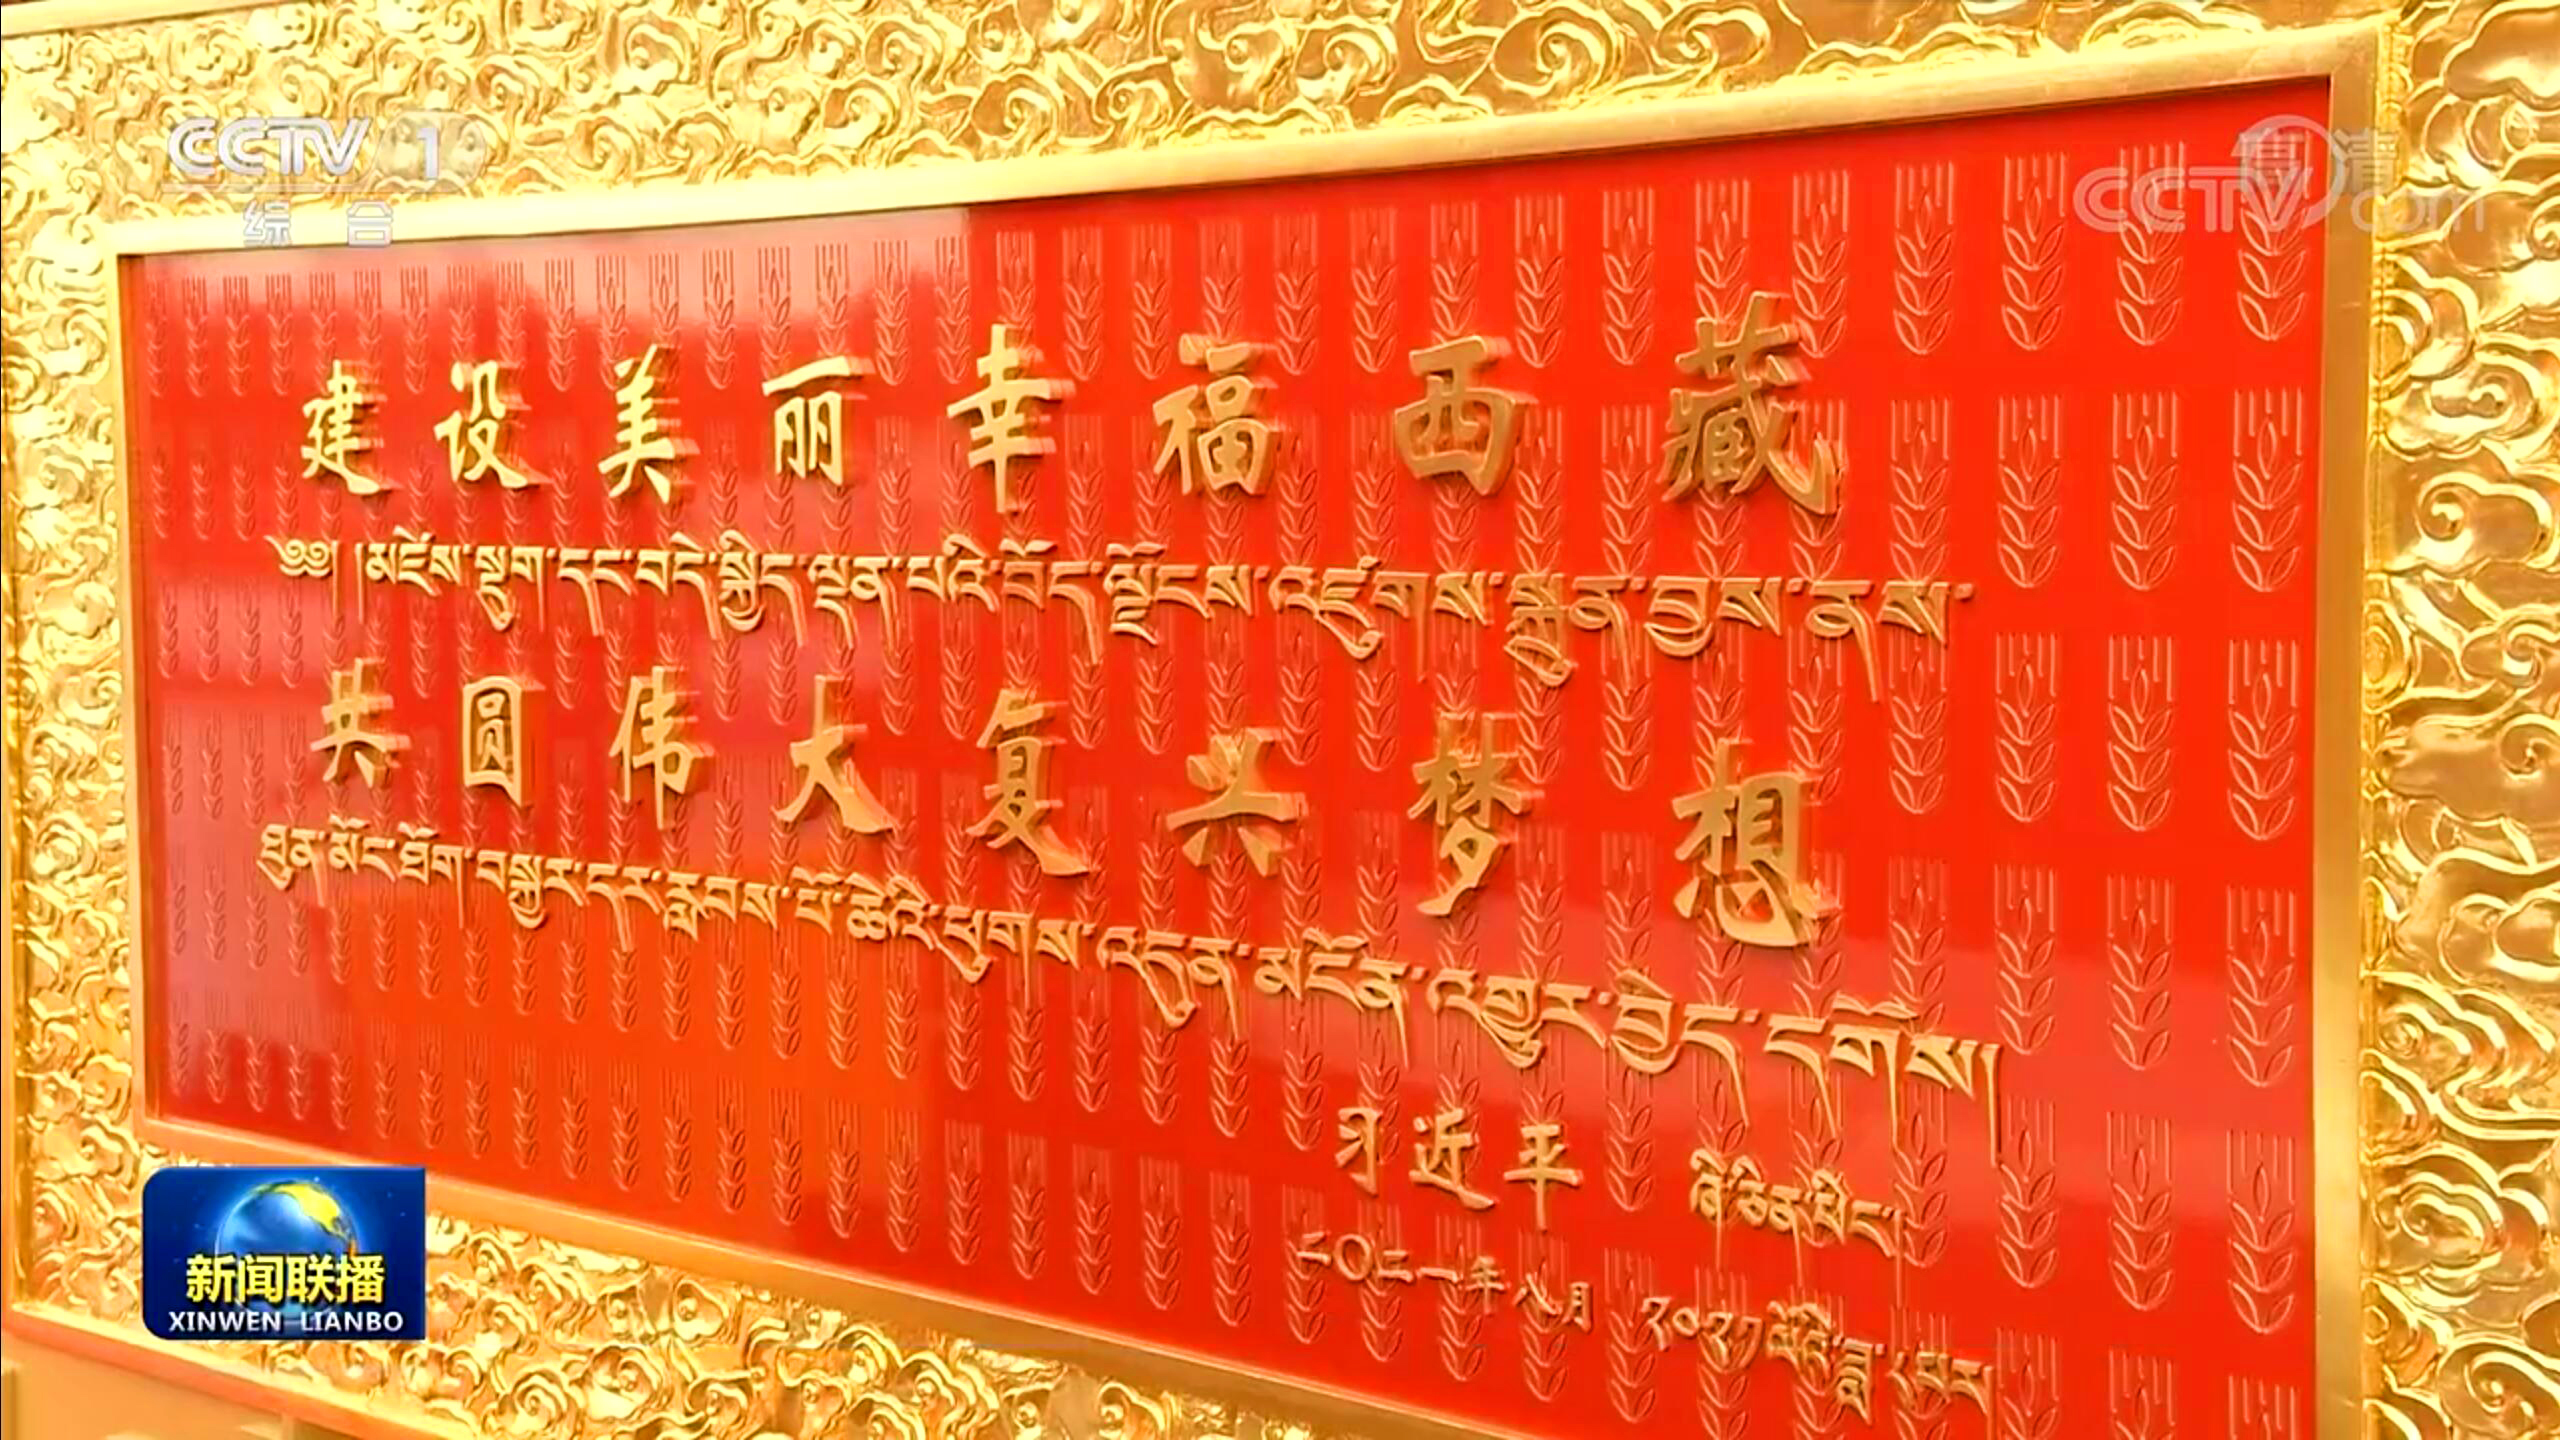 CCTV 1
综合
高清
CCTV.com
建设美丽幸福西藏
༄༅། །མཛེས་སྡུག་དང་བདེ་སྐྱིད་ལྡན་པའི་བོད་ལྗོངས་འཛུགས་སྐྲུན་བྱས་ནས་
共圆伟大复兴梦想
ཐུན་མོང་ཐོག་བསྐྱར་དར་རླབས་པོ་ཆེའི་ཕུགས་འདུན་མངོན་འགྱུར་བྱེད་དགོས།
习近平 ཞི་ཅིན་ཕིང་།
二〇二一年八月 ༢༠༢༡ལོའི་ཟླ་༨པར།
新闻联播
XINWEN LIANBO